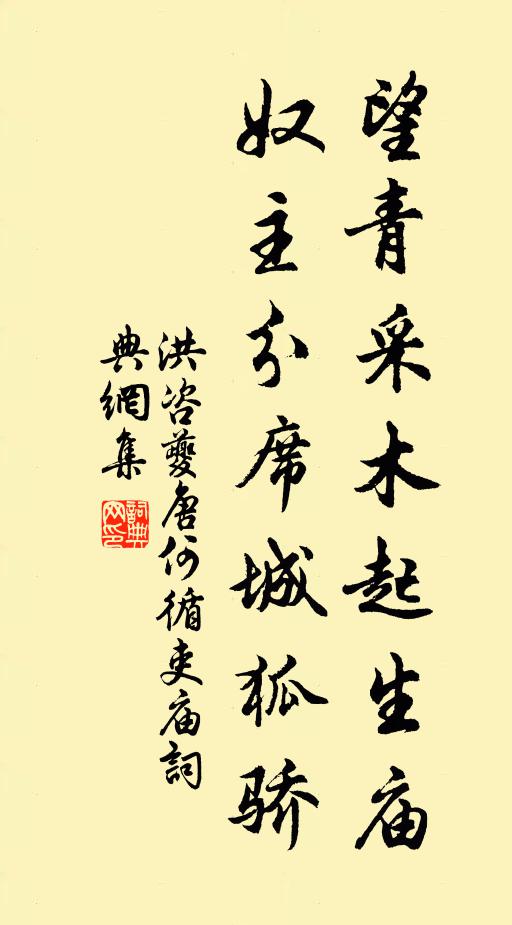 望青采木起生庙
奴主分席城狐骄
洪咨夔唐何循吏庙詞
典網集
詞典
网印